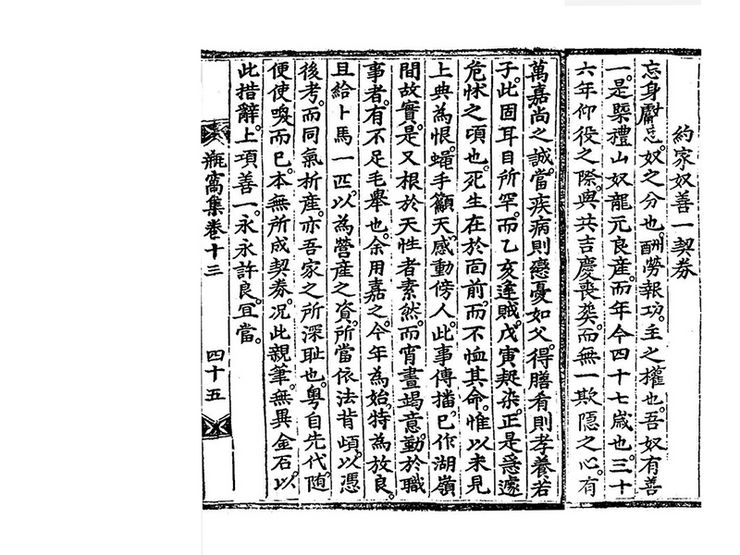 約家奴善一契券
忘身 奴之分也。酬勞報功。主之權也。吾奴有善
一。是槩禮山奴龍元良産。而年今四十七歲也。三十
六年仰役之際。與共吉慶喪葬。而無一欺隱之心。有
萬嘉尚之誠。當疾病則 憂如父。得膳肴則孝養若
子。此固耳目所罕。而乙亥逢賊。戊寅疑染。正是 遽
危怵之頃也。死生在於面前。而不恤其命。惟以未見
上典為恨。 手籲天。感動傍人。此事傳播。已作湖嶺
間故實。是又根於天性者素然。而宵晝竭意。勤於職
事者。有不足毛舉也。余用嘉之。今年為始。特為放良。
且給卜馬一匹。以為營産之資。所當依法背頉。以憑
後考。而同氣析産。亦吾家之所深恥也。粤自先代。随
便使喚而已。本無所成契券。况此親筆。無異金石。以
此措辭。上項善一。永永許良。冝當。
瓶窩集卷十三
四十五